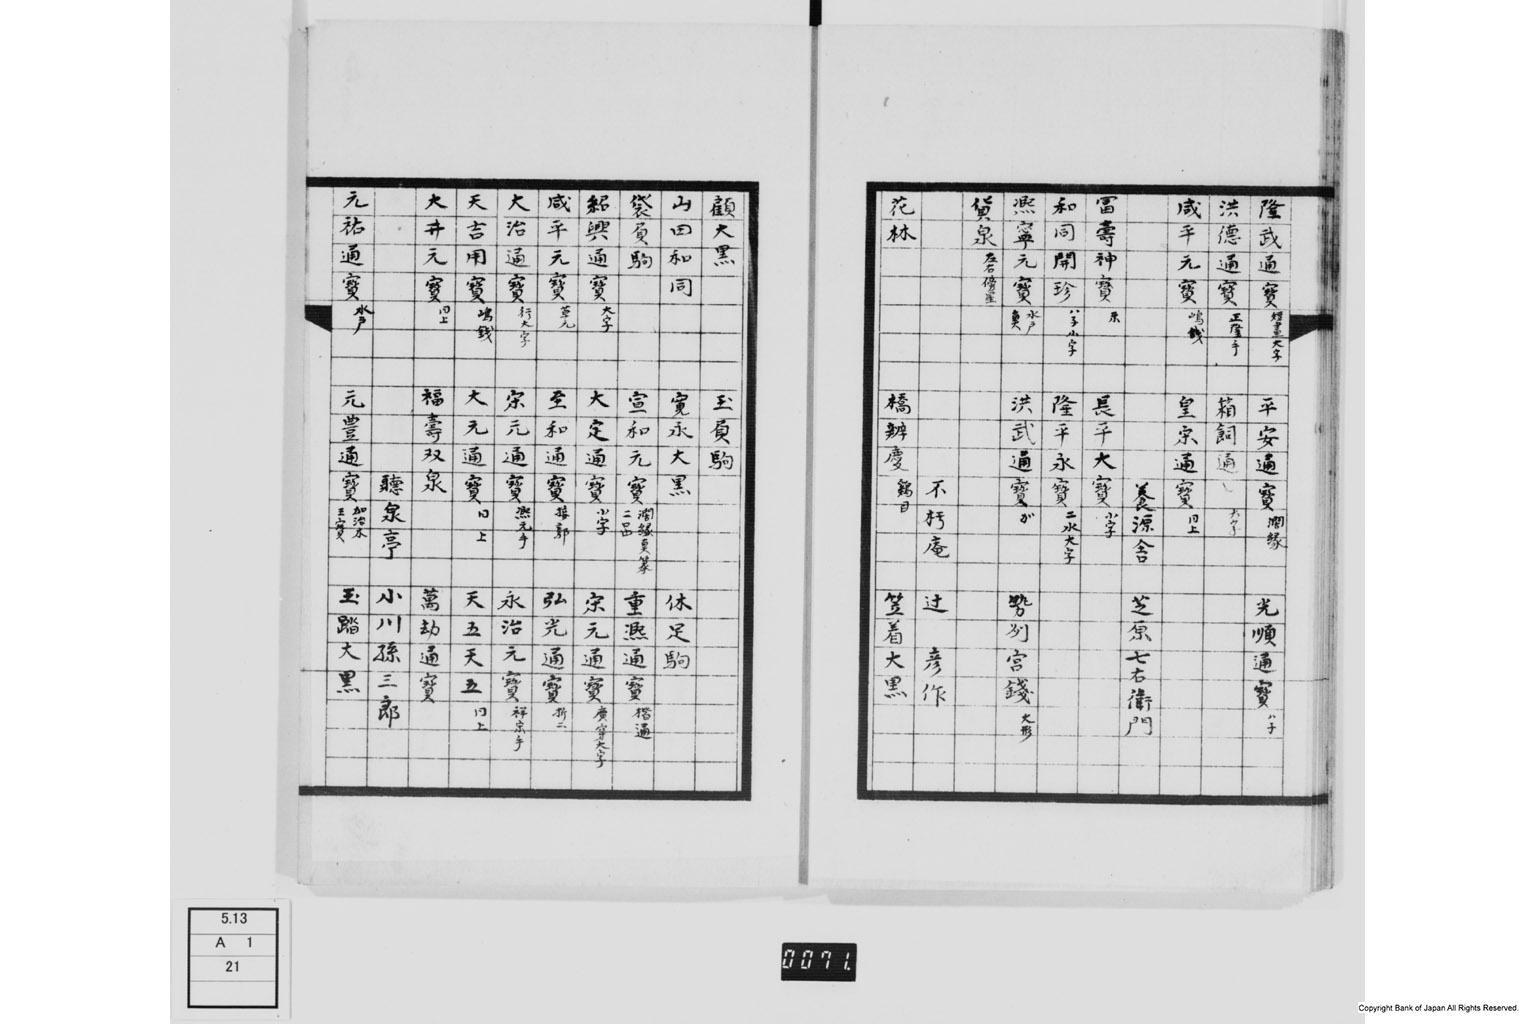 隆武通寳 短畫大字 平安通寳 濶縁 光順通寳 ハ子
洪德通寳 正隆手 箱飼通〻
咸平元寳 嶋銭 皇宋通寳 同上
養源舎 芝原七右衛門
冨壽神寳 長平大寳 小字
和同開珍 ハ子小字 隆平永寳 二水大字
熈寧元寳 水戸 洪武通寳 勢州宮錢 大形
貨泉 左右傍星
不朽庵 辻 彦作
花林 橋辨慶 笠着大黒
顧大黒 玉負駒
山田和同 寛永大黒 休足駒
袋負駒 宣和元寳 濶縁真篆 二品 重熈通寳 楷通
紹興通寳 大字 大定通寳 小字 宋元通寳 廣穿大字
咸平元寳 草元 至和通寳 接郭 弘光通寳 折二
大治通寳 行大字 宋元通寳 熈元手 永治元寳 祥宗手
天吉用寳 嶋銭 大元通寳 同上 天五天五 同上
大井元寳 同上 福壽双泉 萬劫通寳
聽泉亭 小川孫三郎
元祐通寳 水戸 元豊通寳 加治木 王寳 玉踏大黒
5.13
A 1
21
0071.
Copyright Bank of Japan All Rights Reserved.